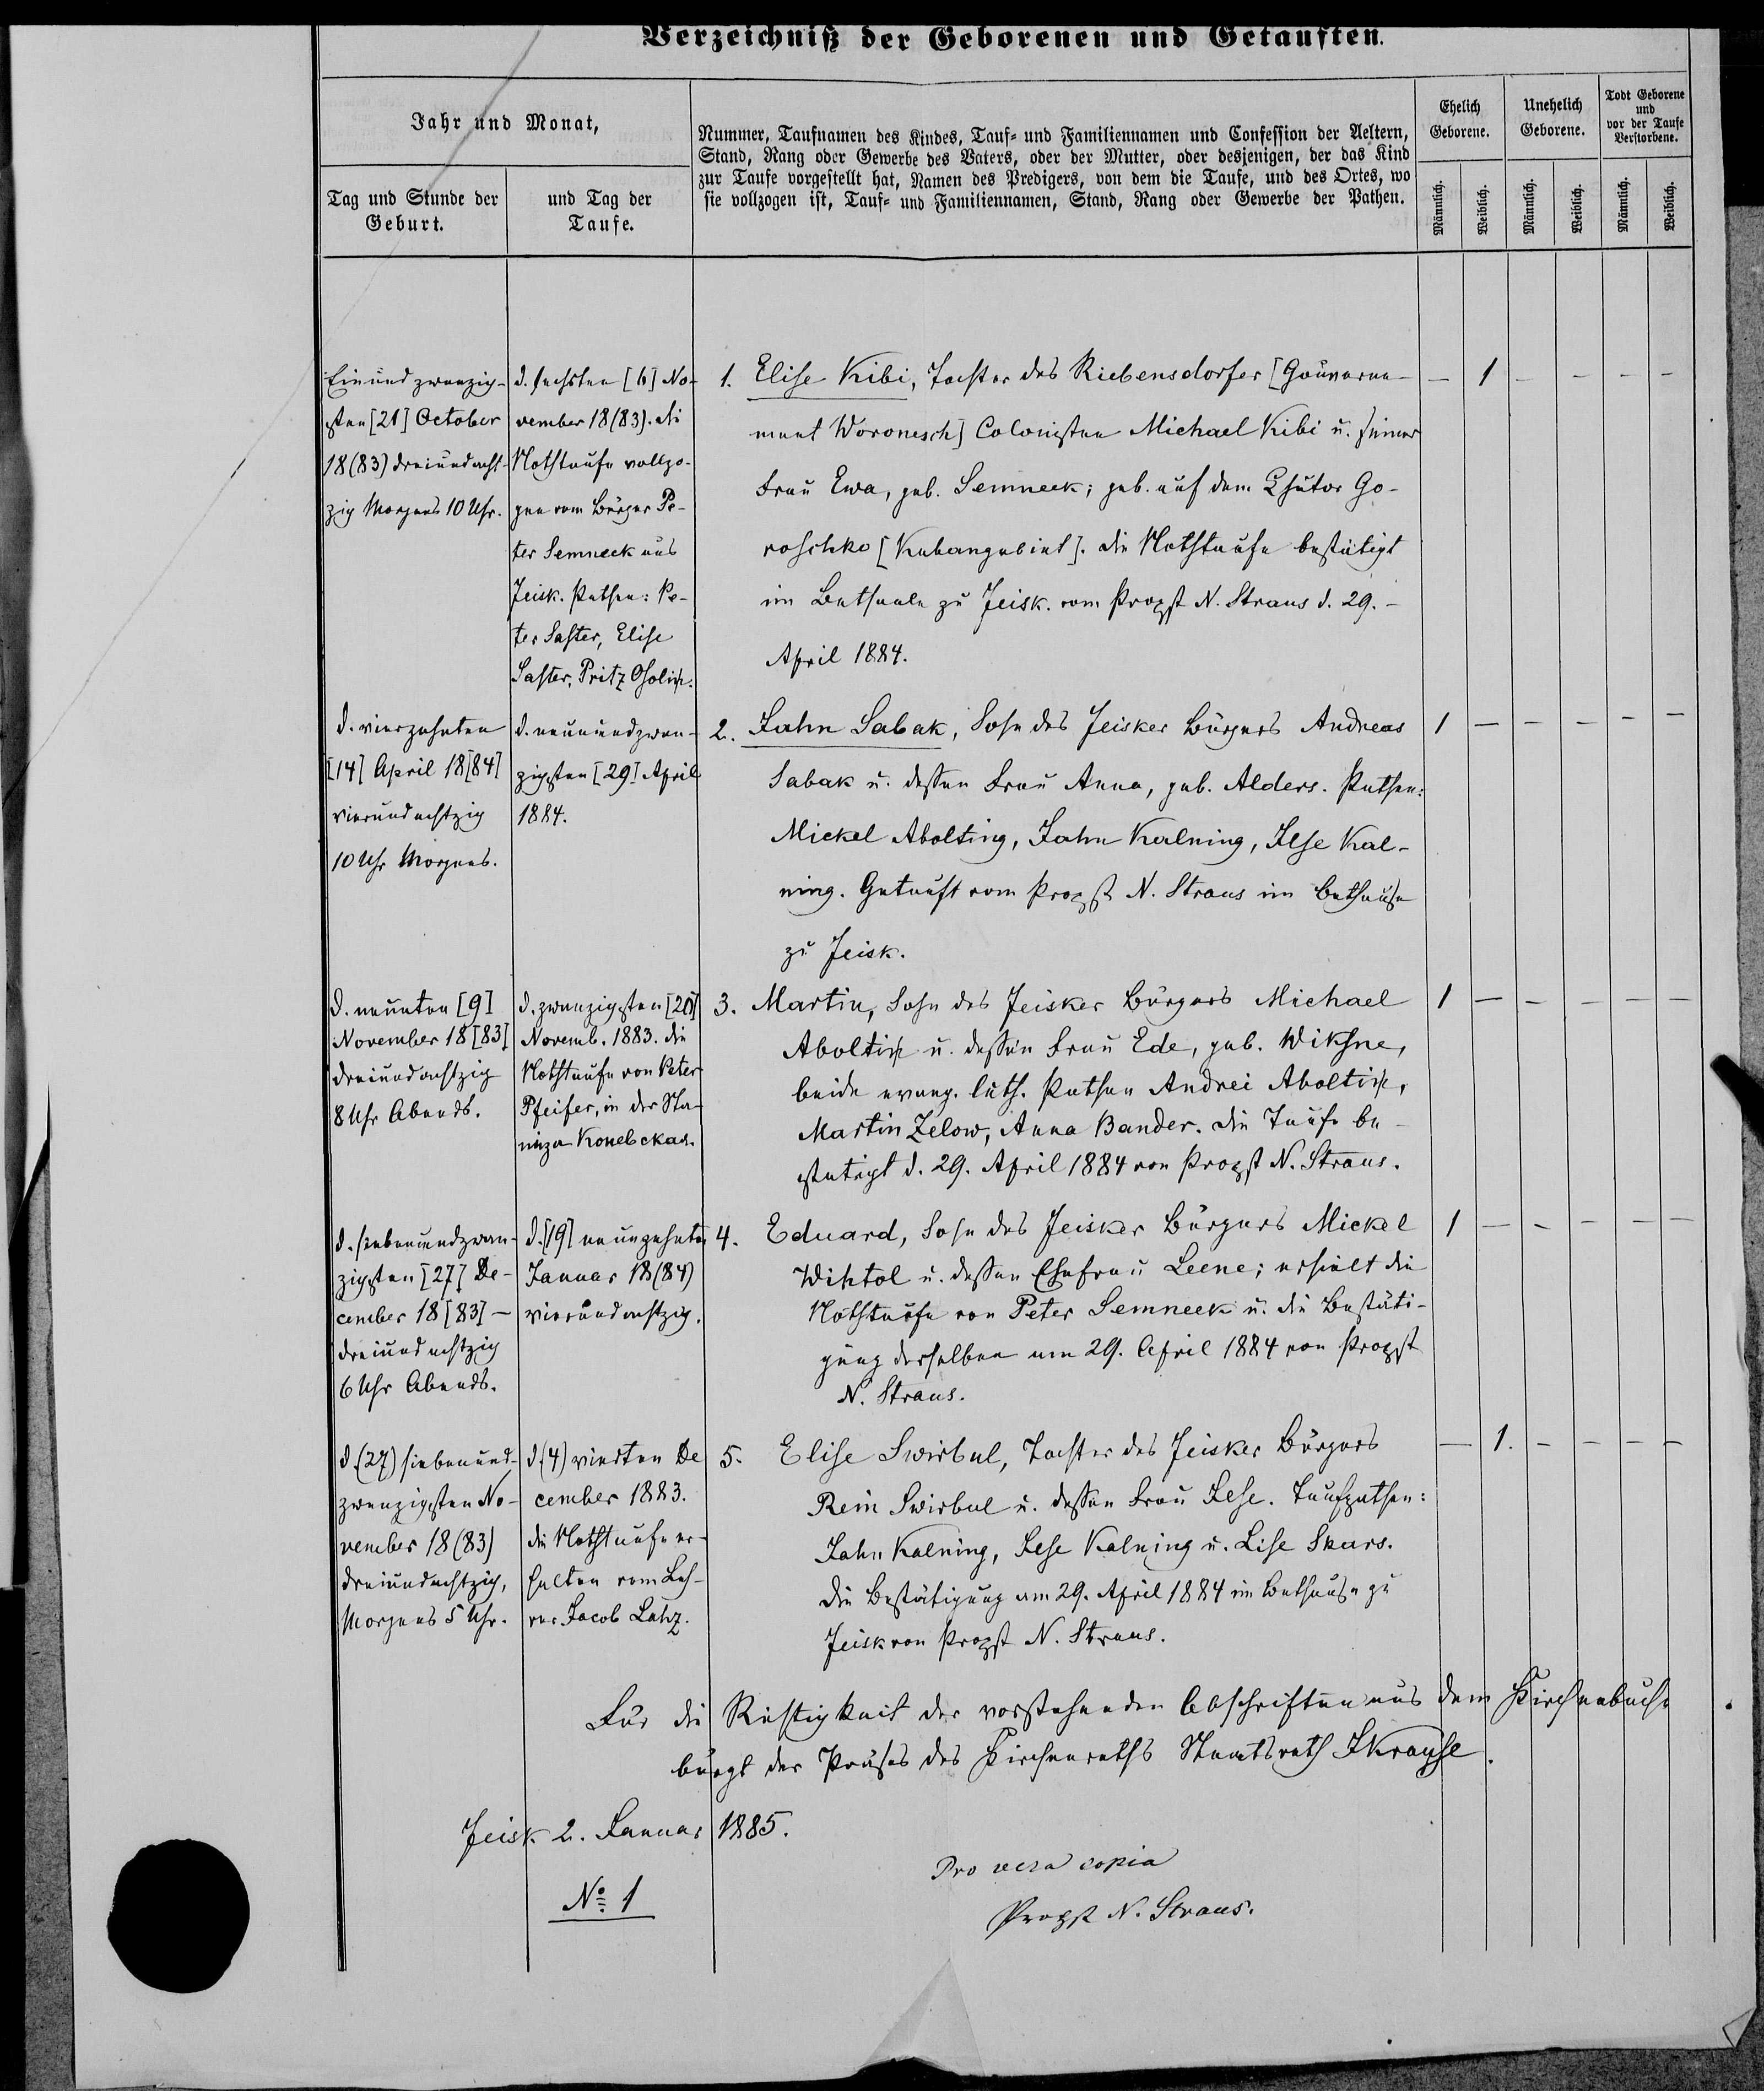 Verzeichniß der Geborenen und Getauften.
Jahr und Monat,
Tag und Stunde der
Geburt.
und Tag der
Taufe.
Nummer, Taufnamen des Kindes, Tauf- und Familiennamen und Confession der Aeltern,
Stand, Rang oder Gewerbe des Vaters, oder der Mutter, oder desjenigen, der das Kind
zur Taufe vorgestellt hat, Namen des Predigers, von dem die Taufe, und des Ortes, wo
sie vollzogen ist, Tauf- und Familiennamen, Stand, Rang oder Gewerbe der Pathen.
Ehelich
Geborene.
Unehelich
Geborene.
Todt Geborene
und
vor der Taufe
Verstorbene.
Männlich.
Weiblich.
Männlich.
Weiblich.
Männlich.
Weiblich.
Einundzwanzig-
sten [21] October
18(83) dreiundacht-
zig Morgens 10 Uhr.
d. sechsten [6] No-
vember 18(83). die
Nothtaufe vollzo-
gen vom Bürger Pe-
ter Semneek aus
Jeisk. Pathen: Pe-
ter Saster, Elise
Saster, Pritz Osolin.
1. Elise Kibi, Tochter des Riebensdorfer [Gouverne- — 1 — — — —
ment Woronesch] Colonisten Michael Kibi u. seiner
Frau Ewa, geb. Semneek; geb. auf dem Chutor Go-
roschko [Kubangebiet]. Die Nothtaufe bestätigt
im Bethaale zu Jeisk. vom Propst N. Straus d. 29. -
April 1884.
d. vierzehnten
[14] April 18[84]
vierundachtzig
10 Uhr Morgens.
d. neunundzwan-
zigsten [29] April
1884.
2. Jahn Sabak, Sohn des Jeisker Bürgers Andreas 1 — — — — —
Sabak u. dessen Frau Anna, geb. Alders. Pathen:
Mickel Abolting, Jahn Kalning, Ilse Kal-
ning. Getauft vom Propst N. Straus im Bethause
zu Jeisk.
d. neunten [9]
November 18[83]
dreiundachtzig
8 Uhr Abends.
d. zwanzigsten [20]
Novemb. 1883. die
Nothtaufe von Peter
Pfeifer, in der Sta-
niza Konelskaя.
3. Martin, Sohn des Jeisker Bürgers Michael 1 — — — — —
Aboltin u. dessen Frau Ede, geb. Wiksne,
beide evang. luth. Pathen Andrei Aboltin,
Martin Zelow, Anna Bander. Die Taufe be-
stätigt d. 29. April 1884 von Propst N. Straus.
d. siebenundzwan-
zigsten [27] De-
cember 18[83] -
dreiundachtzig
6 Uhr Abends.
d. [19] neunzehnten
Januar 18(84)
vierundachtzig.
4. Eduard, Sohn des Jeisker Bürgers Mickel 1 — — — — —
Wihtol u. dessen Ehefrau Leene; erhielt die
Nothtaufe von Peter Semneek u. die Bestäti-
gung derselben am 29. April 1884 von Propst
N. Straus.
d. (27) siebenund-
zwanzigsten No-
vember 18(83)
dreiundachtzig,
Morgens 5 Uhr.
d. (4) vierten De
cember 1883.
die Nothtaufe er-
halten vom Leh-
rer Jacob Lahz.
5. Elise Swirbul, Tochter des Jeisker Bürgers — 1. — — — —
Rein Swirbul u. dessen Frau Ilse. Taufpathen:
Jahn Kalning, Ilse Kalning u. Lise Skars.
Die Bestätigung am 29. April 1884 im Bethause zu
Jeisk von Propst N. Straus.
Für die Richtigkeit der vorstehenden Abschriften aus dem Kirchenbuche
bürgt der Präses des Kirchenraths Staatsrath J Krause.
Jeisk 2. Januar 1885.
No. 1
Pro vera copia
Propst N. Straus.